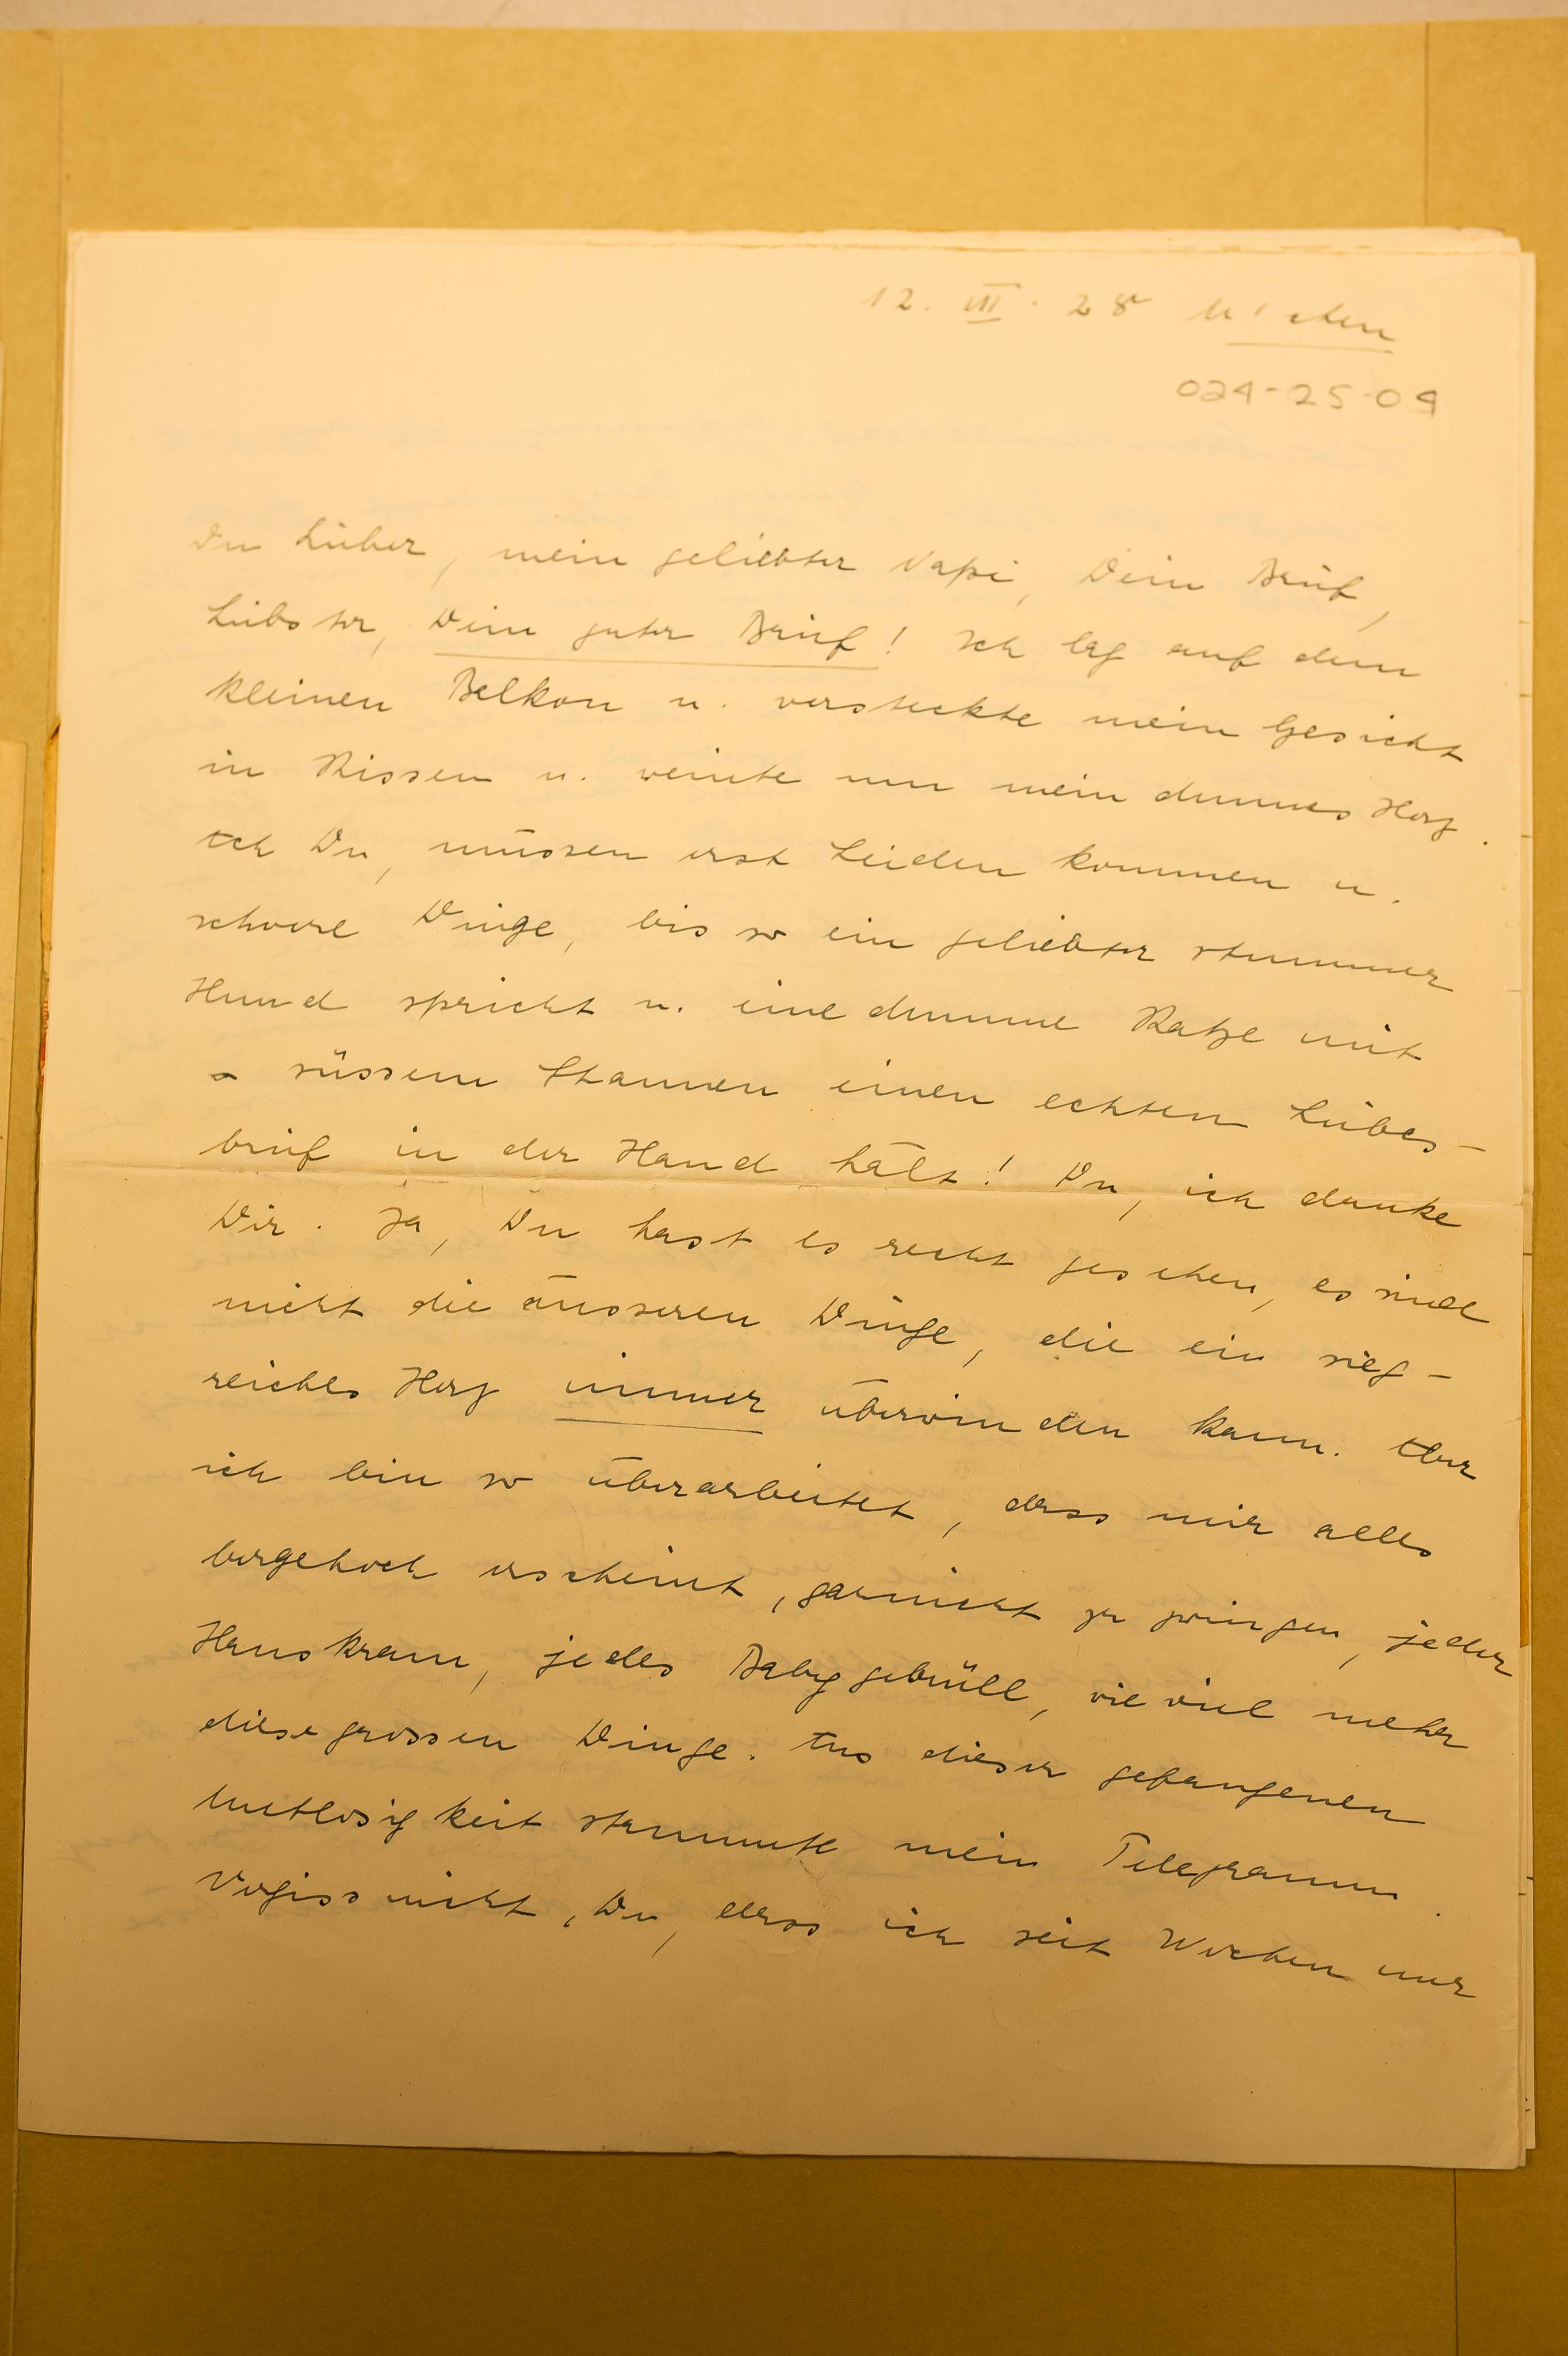 12. III. 28
024-25-09
Du Lieber, mein geliebter Napi, Dein Brief,
Liebster, Dein guter Brief! Ich lag auf dem
kleinen Balkon u. versteckte mein Gesicht
in Kissen u. weinte nun mein dummes Herz.
Ach Du, müssen erst Leiden kommen u.
schwere Dinge, bis so ein geliebter stummer
Hund spricht u. eine dumme Katze mit
süssem Staunen einen echten Liebes-
brief in der Hand hält! Du, ich danke
Dir. Ja, Du hast es recht gesehen, es sind
nicht die äusseren Dinge, die ein sieg-
reiches Herz immer überwinden kann. Aber
ich bin so überarbeitet, dass mir alles
bergehoch erscheint, garnicht zu zwingen, jeder
Hauskram, jedes Babygebrüll, wie viel mehr
diese grossen Dinge. Aus dieser gefangenen
Mutlosigkeit stammte mein Telegramm.
Vergiss nicht, Du, dass ich seit Wochen nur